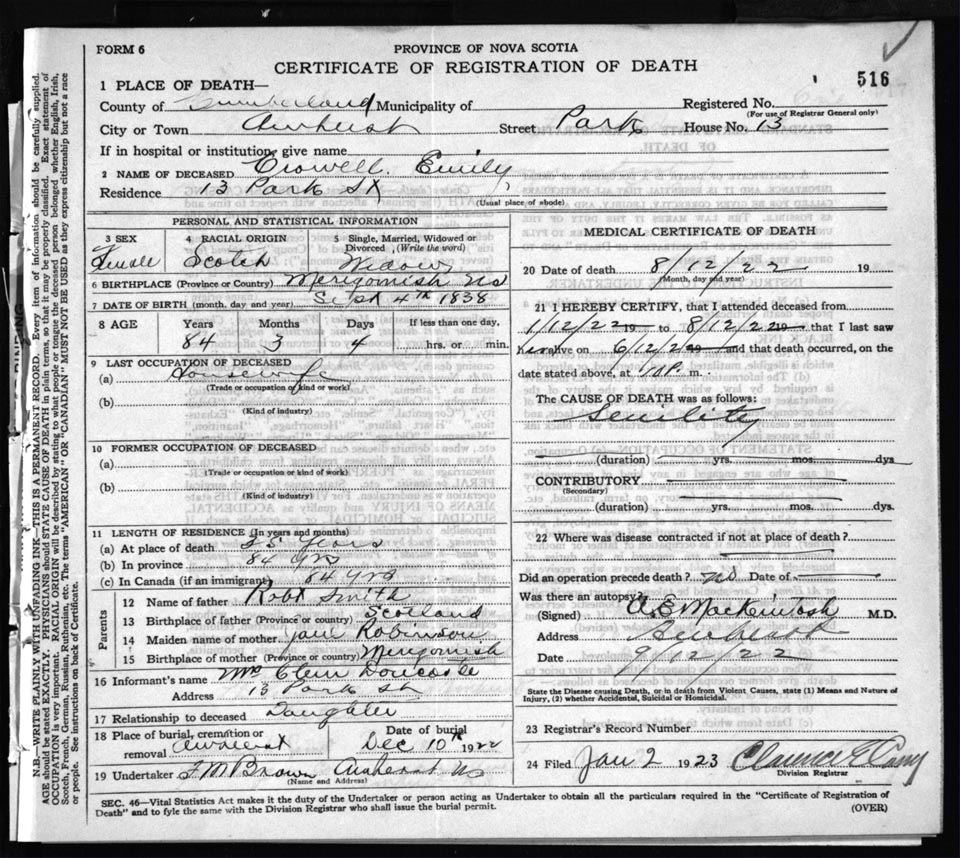 FORM 6
PROVINCE OF NOVA SCOTIA
CERTIFICATE OF REGISTRATION OF DEATH
516
1 PLACE OF DEATH—
County of Cumberland Municipality of
Registered No.
(For use of Registrar General only)
City or Town Amherst Street Park House No. 13
If in hospital or institution, give name
2 NAME OF DECEASED Crowell Emily
Residence 13 Park St
(Usual place of abode)
PERSONAL AND STATISTICAL INFORMATION
3 SEX 4 RACIAL ORIGIN 5 Single, Married, Widowed or Divorced, (Write the word)
Female Scotch Widow
6 BIRTHPLACE (Province or Country) Merigomish NS
7 DATE OF BIRTH (month, day and year) Sept 4th 1838
8 AGE Years Months Days If less than one day,
84 3 4 hrs. or min.
9 LAST OCCUPATION OF DECEASED
(a) Housewife
(Trade or occupation or kind or work)
(b)
(Kind of industry)
10 FORMER OCCUPATION OF DECEASED
(a)
(Trade or occupation or kind of work)
(b)
(Kind of industry)
11 LENGTH OF RESIDENCE (In years and months)
(a) At place of death years
(b) In province 84 yrs
(c) In Canada (if an immigrant) 84 yrs
Parents
12 Name of father Robt Smith
13 Birthplace of father (Province or country) Scotland
14 Maiden name of mother Jane Robinson
15 Birthplace of mother (Province or country) Merigomish
16 Informant's name Mrs Clem Doncaster
Address 13 Park St
17 Relationship to deceased Daughter
18 Place of burial, cremation or removal Amherst
Date of burial Dec 10th 1922
19 Undertaker F. M. Brown Amherst NS
(Name and Address)
MEDICAL CERTIFICATE OF DEATH
20 Date of death 8/12/22 19
(Month, day and year)
21 I HEREBY CERTIFY, that I attended deceased from
1/12/22 19 to 8/12/22 19 that I last saw
h alive on 6/12/2 and that death occurred, on the
date stated above, at m.
The CAUSE OF DEATH was as follows:
Senility
(duration) yrs. mos. dys
CONTRIBUTORY
(Secondary)
(duration) yrs. mos. dys.
22 Where was disease contracted if not at place of death?
Did an operation precede death? no Date of
Was there an autopsy?
(Signed) A. E. Mackintosh M.D.
Address Amherst
Date 9/12/22
State the Disease causing Death, or in death from Violent Causes, state (1) Means and Nature of
Injury, (2) whether Accidental, Suicidal or Homicidal.
23 Registrar's Record Number
24 Filed Jan 2 1923 Clarence E Casey
Division Registrar
SEC. 46—Vital Statistics Act makes it the duty of the Undertaker or person acting as Undertaker to obtain all the particulars required in the "Certificate of Registration of
Death" and to fyle the same with the Division Registrar who shall issue the burial permit.
(OVER)
N.B.—WRITE PLAINLY WITH UNFADING INK—THIS IS A PERMANENT RECORD. Every item of information should be carefully supplied.
AGE should be stated EXACTLY. PHYSICIANS should STATE CAUSE OF DEATH in plain terms, so that it may be properly classified. Exact statement of
OCCUPATION is very important. RACIAL ORIGIN will be described by stating to what people or tongue the deceased person belonged whether English, Irish,
Scotch, French, German, Russian, Ruthenian, etc. The terms "AMERICAN" OR "CANADIAN" MUST NOT BE USED as they express citizenship but not a race
or people. See instructions on back of Certificate.